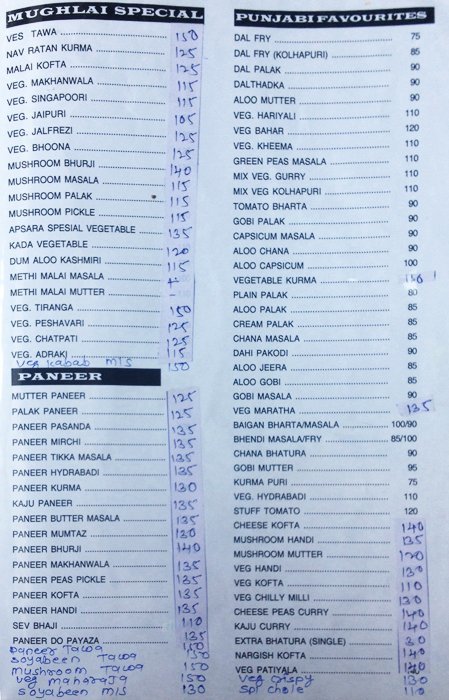 MUGHLAI SPECIAL
VES TAWA 150
NAV RATAN KURMA 125
MALAI KOFTA 125
VEG. MAKHANWALA 115
VEG. SINGAPOORI 115
VEG. JAIPURI 105
VEG. JALFREZI 125
VEG. BHOONA 125
MUSHROOM BHURJI 140
MUSHROOM MASALA 115
MUSHROOM PALAK 115
MUSHROOM PICKLE 115
APSARA SPESIAL VEGETABLE 135
KADA VEGETABLE 120
DUM ALOO KASHMIRI 115
METHI MALAI MASALA
METHI MALAI MUTTER -
VEG. TIRANGA 150
VEG. PESHAVARI 125
VEG. CHATPATI 125
VEG. ADRAKI 115
Veg kabab MIS 150
PANEER
MUTTER PANEER 125
PALAK PANEER 125
PANEER PASANDA 135
PANEER MIRCHI 135
PANEER TIKKA MASALA 135
PANEER HYDRABADI 135
PANEER KURMA 130
KAJU PANEER 135
PANEER BUTTER MASALA 135
PANEER MUMTAZ 130
PANEER BHURJI 140
PANEER MAKHANWALA 135
PANEER PEAS PICKLE 135
PANEER KOFTA 135
PANEER HANDI 135
SEV BHAJI 110
PANEER DO PAYAZA 135
paneer Tawa 150
soyabeen Tawa 130
mushroom Tawa 150
veg maharaja 150
soyabeen MIS 130
PUNJABI FAVOURITES
DAL FRY 75
DAL FRY (KOLHAPURI) 85
DAL PALAK 90
DALTHADKA 90
ALOO MUTTER 90
VEG. HARIYALI 110
VEG BAHAR 120
VEG. KHEEMA 110
GREEN PEAS MASALA 110
MIX VEG. GURRY 110
MIX VEG KOLHAPURI 110
TOMATO BHARTA 90
GOBI PALAK 90
CAPSICUM MASALA 90
ALOO CHANA 90
ALOO CAPSICUM 100
VEGETABLE KURMA 150
PLAIN PALAK 80
ALOO PALAK 85
CREAM PALAK 85
CHANA MASALA 85
DAHI PAKODI 90
ALOO JEERA 85
ALOO GOBI 85
GOBI MASALA 90
VEG MARATHA 135
BAIGAN BHARTA/MASALA 100/90
BHENDI MASALA/FRY 85/100
CHANA BHATURA 90
GOBI MUTTER 95
KURMA PURI 75
VEG. HYDRABADI 110
STUFF TOMATO 120
CHEESE KOFTA 140
MUSHROOM HANDI 135
MUSHROOM MUTTER 120
VEG HANDI 130
VEG KOFTA 110
VEG CHILLY MILLI 130
CHEESE PEAS CURRY 140
KAJU CURRY 140
EXTRA BHATURA (SINGLE) 30
NARGISH KOFTA 140
VEG PATIYALA 140
Veg crispy 130
spl chole 110